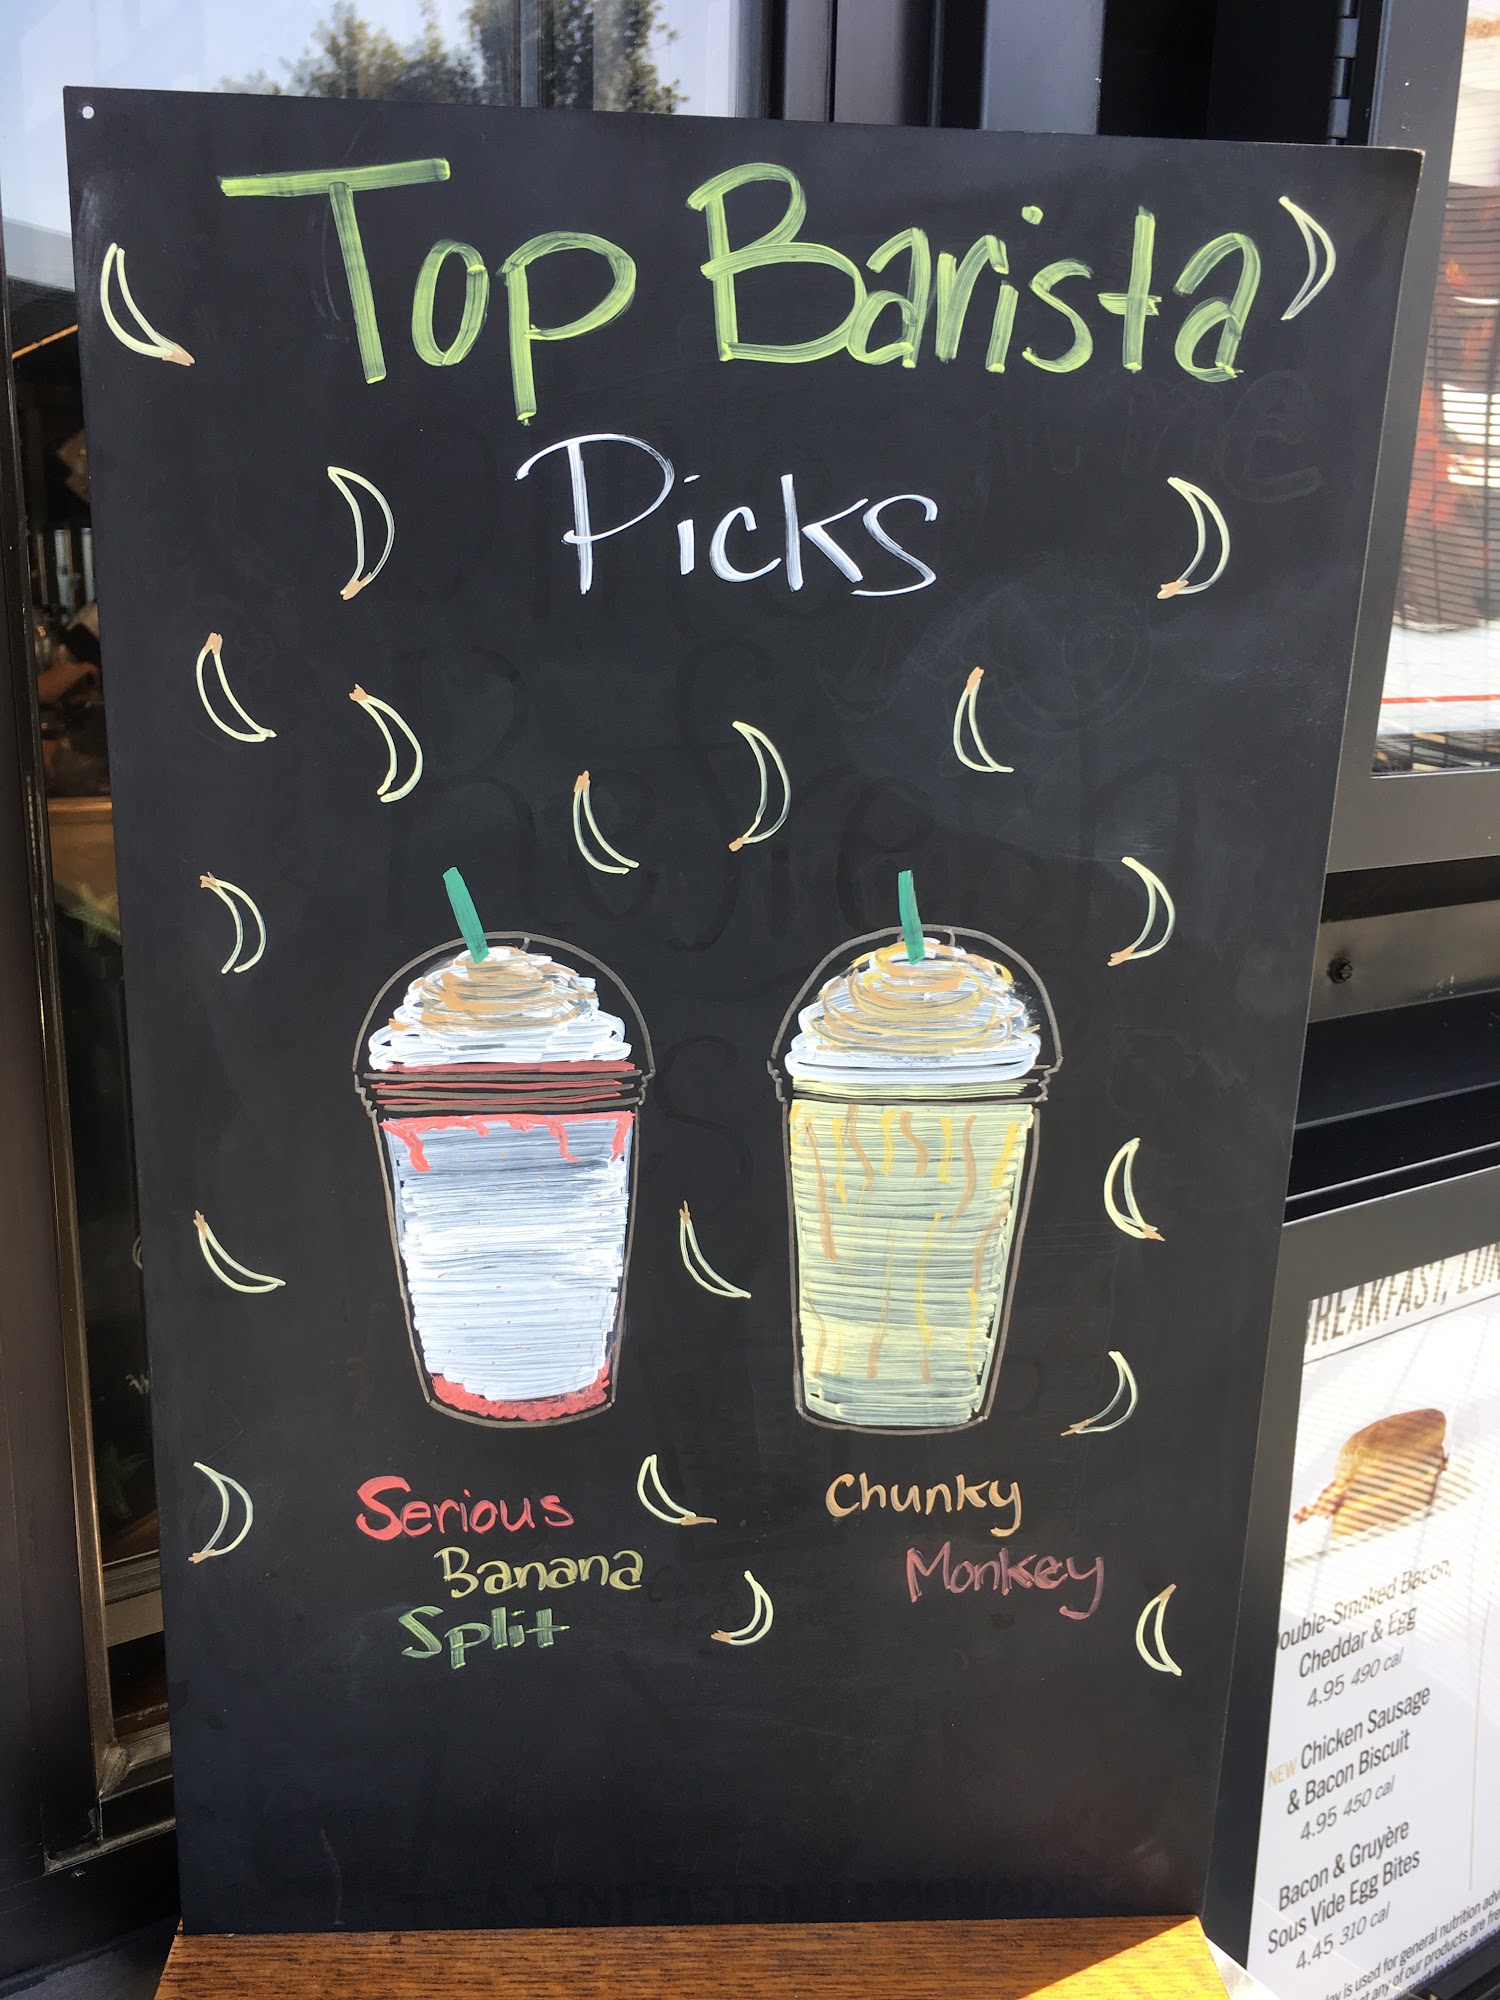 Top Barista
Picks
Serious
Banana
Split
Chunky
Monkey
Double-Smoked Bacon,
Cheddar & Egg
4.95 490 cal
NEW Chicken Sausage
& Bacon Biscuit
4.95 450 cal
Bacon & Gruyère
Sous Vide Egg Bites
4.45 310 cal
is used for general nutrition
any of our products are